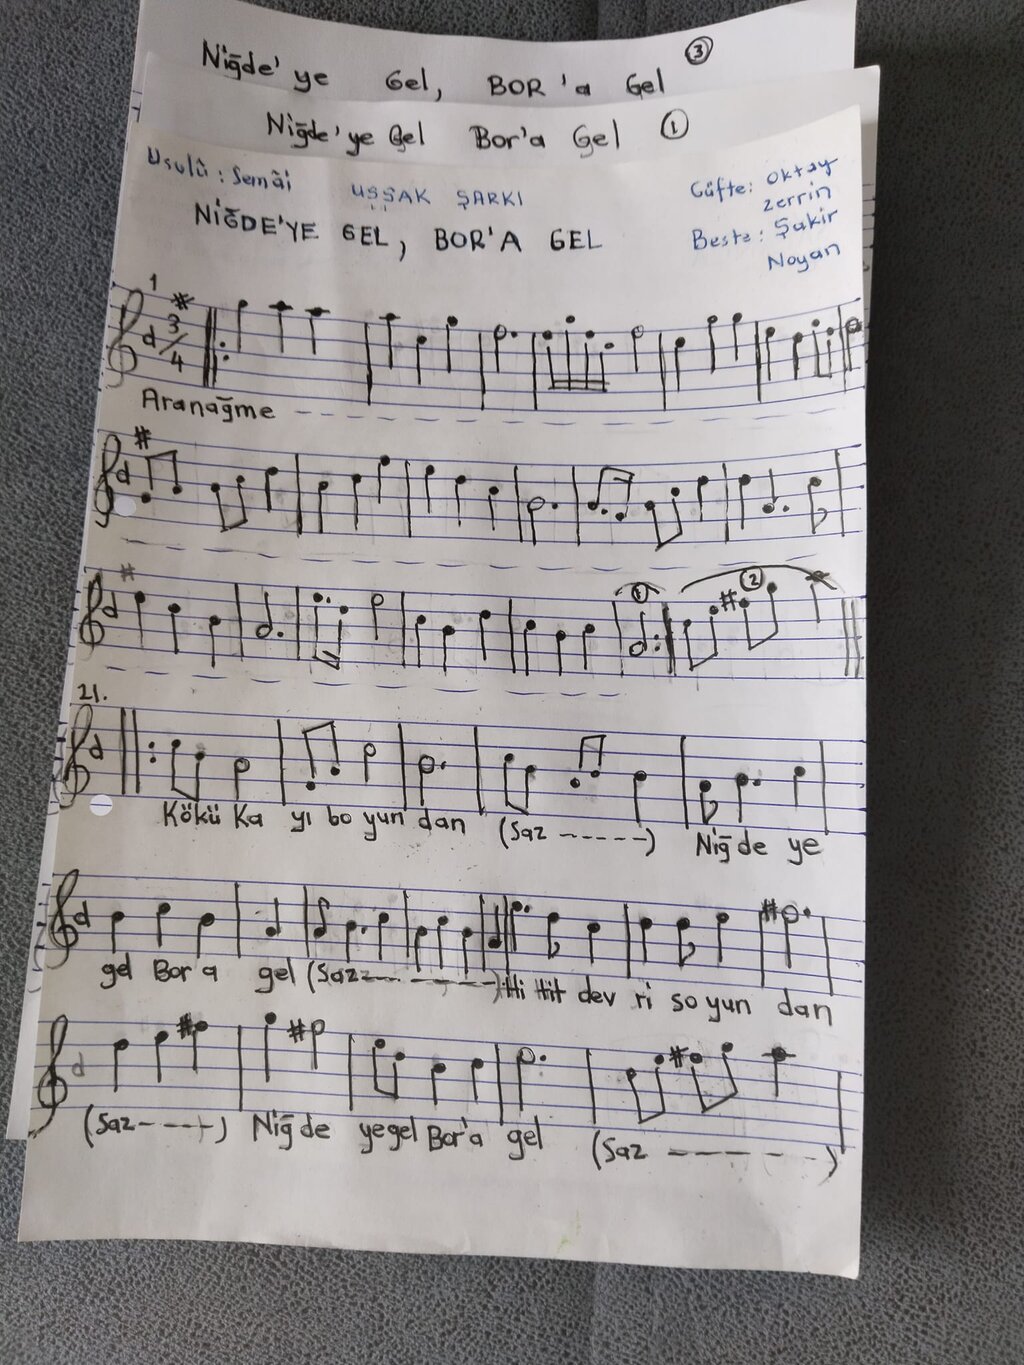 Niğde'ye Gel, BOR'a Gel ③
Niğde'ye Gel Bor'a Gel ①
Usulû: Semâi UŞŞAK ŞARKI Güfte: Oktay
Zerrin
NİĞDE'YE GEL, BOR'A GEL Beste: Şakir
Noyan
1
3/4
Aranağme
① ②
21.
Kökü Ka yı bo yun dan (Saz ------) Niğ de ye
gel Bor'a gel (Saz------) Hi Hit dev ri so yun dan
(Saz-----) Niğ de ye gel Bor'a gel (Saz ------)